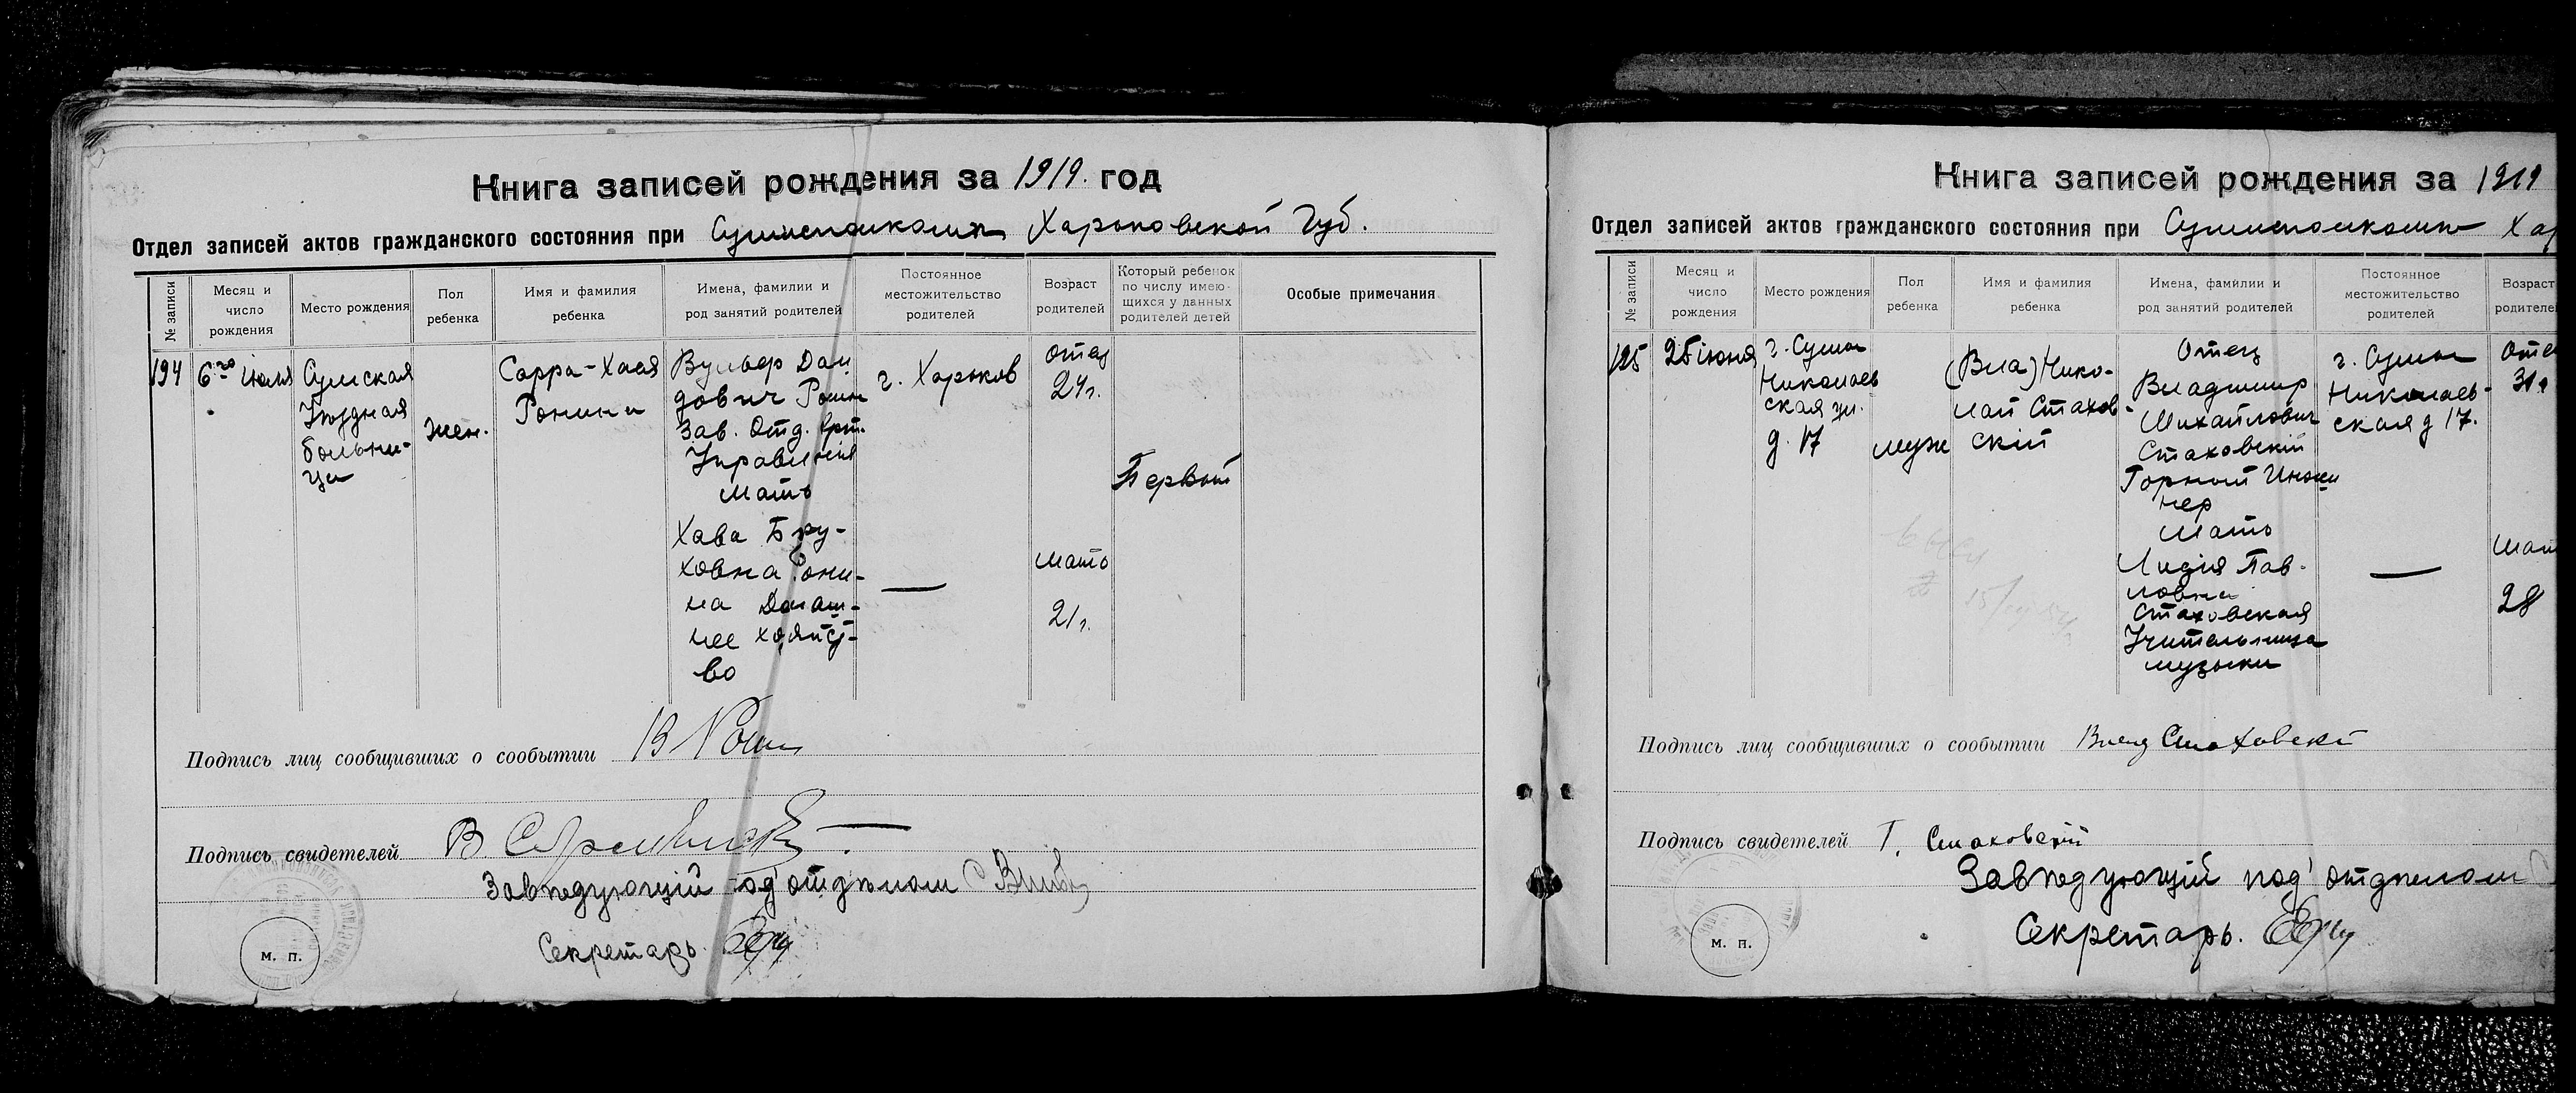 Книга записей рождения за 1919. год
Отдел записей актов гражданского состояния при Сумисполкомѣ Харьковской Губ.
№ записи
Месяц и число рождения
Место рождения
Пол ребенка
Имя и фамилия ребенка
Имена, фамилии и род занятий родителей
Постоянное местожительство родителей
Возраст родителей
Который ребенок по числу имею-
щихся у данных родителей детей
Особые примечания
194
6го Июля
Сумская
Уѣздная
больни-
ца
жен.
Сарра-Хая
Ронина
Вульф Дави
дович Ронин
Зав. Отд.
Управленія
Мать
Хава Бру-
ховна Рони-
на Домаш-
нее хозяйст-
во
г. Харьков
—
отец
24 г.
мать
21 г.
Первый
Подпись лиц сообщивших о сообытии В Ронин
Подпись свидетелей В.
Завѣдующій подотдѣлом
Секретарь.
м. п.
Книга записей рождения за 1919
Отдел записей актов гражданского состояния при Сумисполкомѣ Хар
№ записи
Месяц и число рождения
Место рождения
Пол ребенка
Имя и фамилия ребенка
Имена, фамилии и род занятий родителей
Постоянное местожительство родителей
Возраст родителе
195
25 іюня
г. Сумы
Николаев
ская ул.
д. 17
муж
(Вла) Нико-
лай Стахов-
скій
Отец
Владимир
Михайлович
Стаховскій
Горный Инже
нер
Мать
Лидія Пав-
ловна
Стаховская
Учительница
музыки
г. Сумы
Николаев-
ская д 17.
—
Оте
31 г
Мат
28
Подпись лиц сообщивших о сообытии Влад Стаховскій
Подпись свидетелей Г. Стаховскій
Завѣдующій под'отделом
Секретарь.
м. п.